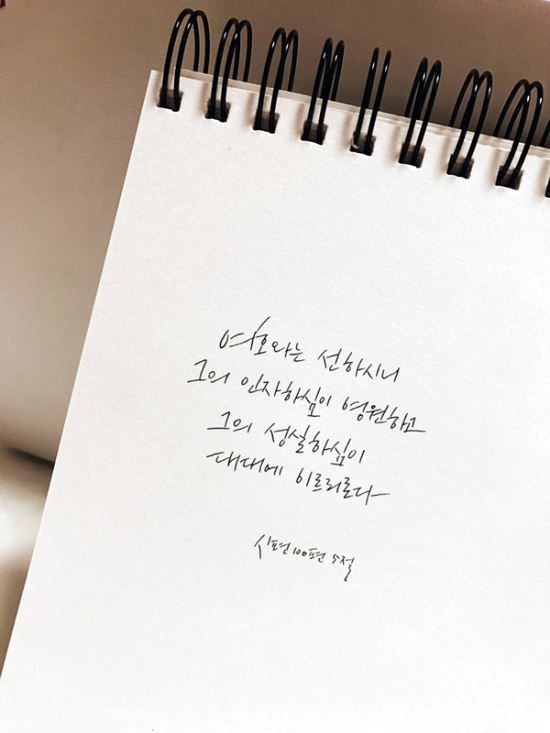 여호와는 선하시니
그의 인자하심이 영원하고
그의 성실하심이
대대에 이르리로다
시편 100편 5절